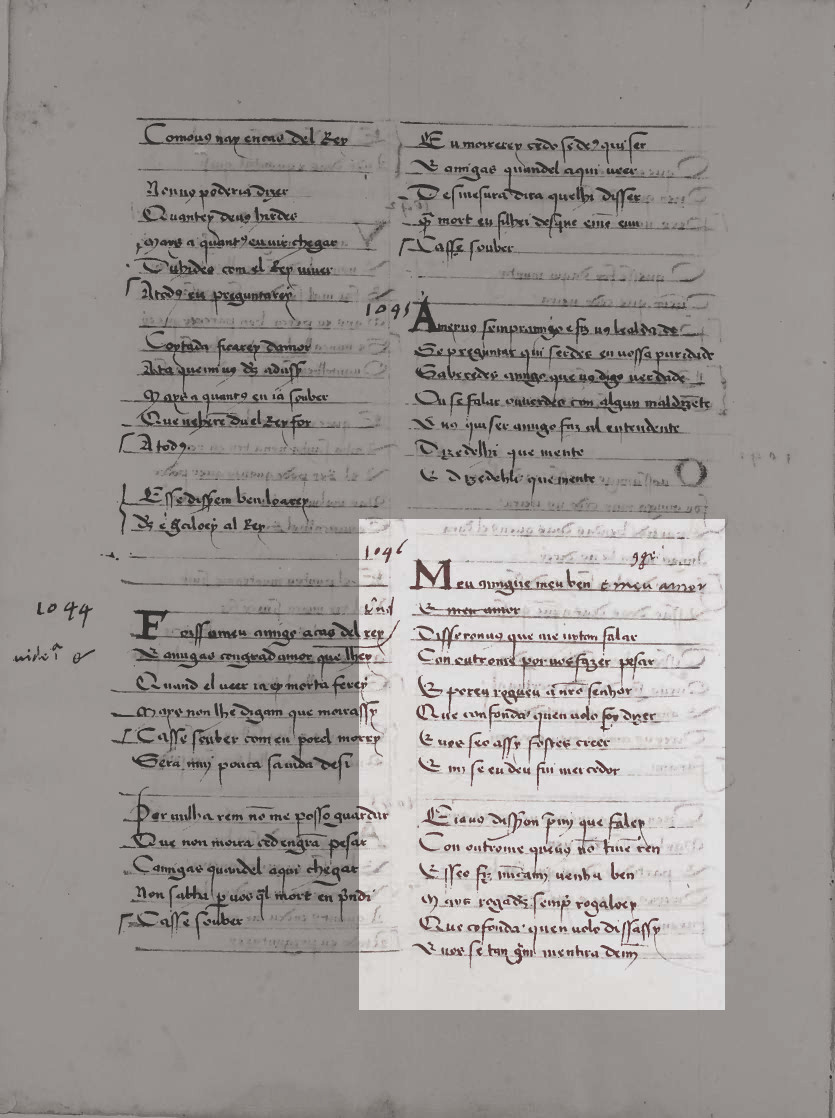 Comoug nay encas del Rey
Nonuo poderia dizer
Quantey deuo hirdes
mays a quantꝰ eu uir chegar
Du hides com el Rey uiuer
A todꝰ eu preguntarey
Coytada ficarey damor
Mays a quantꝰ eu ia souber
Que uehere du el Rey for
A todꝰ
E sse dissem ben loarey
d's e gracirey al Rey
1044
uide
F oissumeu amigo a cas del rey
E amigas congrad amor que lhey
Quand el ueer ia ey morta serey
mays non lhe digam que moirassy
Casse souber com eu porel morry
Sera muy pouca sa uida desi
Per nulha rem nō me posso guardar
Que non moira ced engrā pesar
Camigas quandel aqui chegar
Non sabha per uos q̄l mort eu p̄ndi
Casse souber
E u moirerey cedo se deꝰ quiser
E amigas quandel aqui ueer
Desmesura dira quelhi disser
q̄l mort eu filhei desque
Casse souber
1095
A migo sempramigo e sey uꝰ lealdade
Se preguntar quiserdes en uossa puridade
Saberedes amigo que uꝰ digo uerdade
Ou se falar ouuerdes con algun maldizēte
E uꝰ quiser amigo faz al entendente
Dizedelhi que mente
E dizedelhi que mente
1096
M eu amigue meu ben e meu amor
E meu amor
Disseronuꝰ que me uiron falar
Con outrome por uos fazer pesar
E poren rogueu a nr̄o senhor
Que confonda quen uolo foy dizer
E uos seo assy fostes creer
E mi se eu deu fui merecedor
E iauo disson p̄ mj que faley
Con outrome que uꝰ nō tiue ren
E sseo fiz nūcami uenha ben
Mays rogad's semp̄ rogaloey
Que cōfonda quen uolo dissassy
E uos se tan grā mentira demj